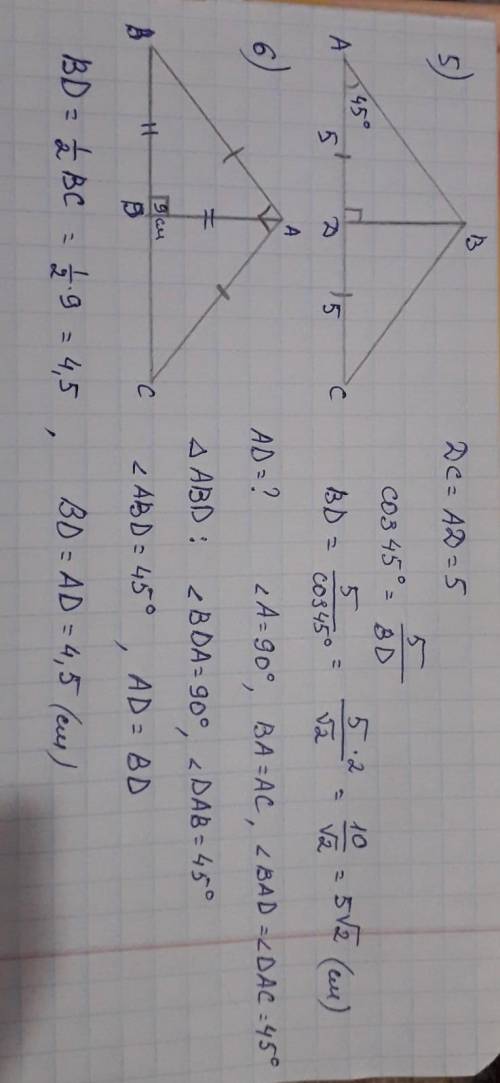 5)
B
45°
A
5
D
5
C
DC = AD = 5
cos 45° = 5/BD
BD = 5/cos 45° = 5·2/√2 = 10/√2 = 5√2 (см)
6)
A
9 см
B
D
C
AD = ? ∠A = 90°, BA = AC, ∠BAD = ∠DAC = 45°
△ABD: ∠BDA = 90°, ∠DAB = 45°
∠ABD = 45°, AD = BD
BD = 1/2 BC = 1/2 · 9 = 4,5, BD = AD = 4,5 (см)